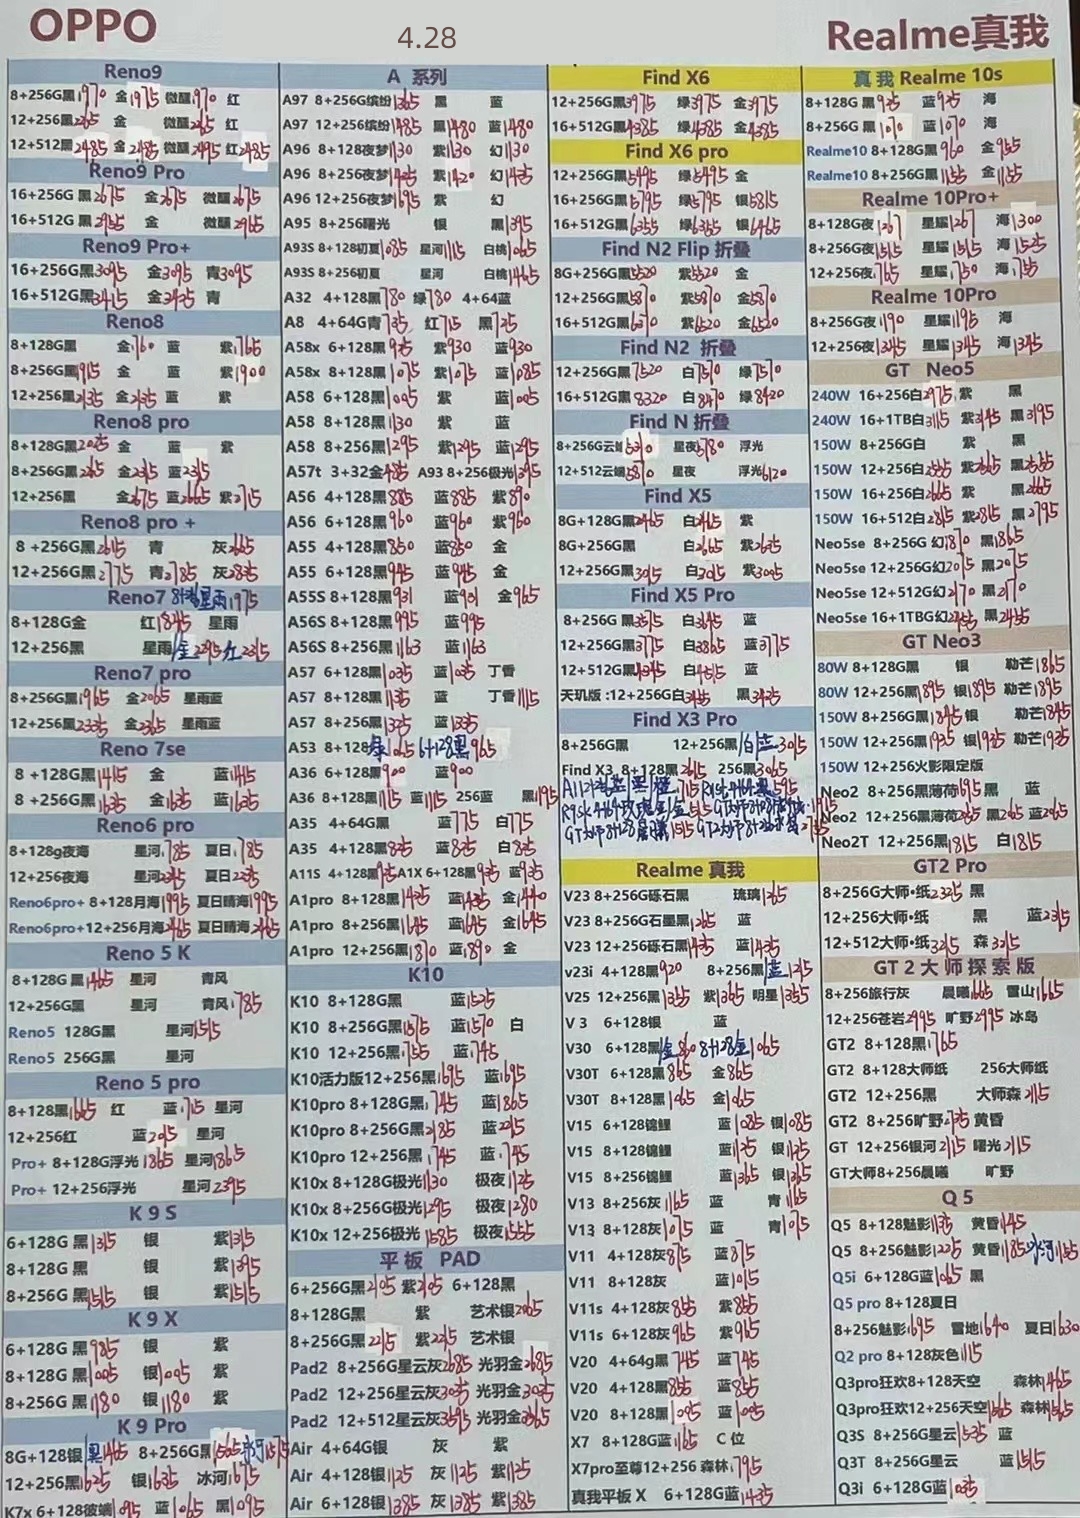 OPPO
4.28
Realme真我
Reno9
8+256G黑1970 金1975 微醺1970 红
12+256黑2265 金 微醺2265 红
12+512黑2485 金2485 微醺2495 红2485
Reno9 Pro
16+256G 黑2675 金2675 微醺2675
16+512G 黑2955 金 微醺2965
Reno9 Pro+
16+256G黑3095 金3095 青3095
16+512G黑3415 金3425 青
Reno8
8+128G黑 金1760 蓝 紫1765
8+256G黑1915 金 蓝 紫1900
12+256黑2135 金2135 蓝 紫
Reno8 pro
8+128G黑2025 金 蓝 紫
8+256G黑2265 金2315 蓝2315
12+256黑 金2675 蓝2665 紫2715
Reno8 pro +
8 +256G黑2615 青 灰2665
12+256G黑2775 青2785 灰2835
Reno7 星雨1975
8+128G金 红1845 星雨
12+256黑 星雨 金2295 红2315
Reno7 pro
8+256G黑1965 金2065 星雨蓝
12+256黑2335 金2365 星雨蓝
Reno 7se
8 +128G黑1415 金 蓝1415
8 +256G黑1635 金1635 蓝1635
Reno6 pro
8+128g夜海 星河1785 夏日1785
12+256夜海 星河2245 夏日2235
Reno6pro+ 8+128月海1995 夏日晴海1995
Reno6pro+12+256月海2465 夏日晴海2465
Reno 5 K
8+128G 黑1465 星河 青风
12+256G黑 星河 青风1785
Reno5 128G黑 星河1515
Reno5 256G黑 星河
Reno 5 pro
8+128黑1665 红 蓝1715 星河
12+256红 蓝2015 星河
Pro+ 8+128G浮光1865 星河1865
Pro+ 12+256浮光 星河2395
K 9 S
6+128G 黑1315 银 紫1315
8+128G 黑 银 紫1395
8+256G 黑1515 银 紫1515
K 9 X
6+128G 黑985 银 紫
8+128G 黑1005 银1005 紫
8+256G 黑1180 银1180 紫
K 9 Pro
8G+128银 黑1465 8+256G黑1565 冰河1575
12+256黑1625 银1635 冰河1675
K7x 6+128彼端1095 蓝1065 黑1095
A 系列
A97 8+256G缤纷1365 黑 蓝
A97 12+256缤纷1485 黑1480 蓝1480
A96 8+128夜梦1130 紫1130 幻1130
A96 8+256夜梦1425 紫1420 幻1435
A96 12+256夜梦1695 紫 幻
A95 8+256曙光 银 黑1395
A93S 8+128初夏1085 星河1115 白桃1065
A93S 8+256初夏 星河 白桃1465
A32 4+128黑780 绿780 4+64蓝
A8 4+64G青735 红715 黑725
A58x 6+128黑925 紫930 蓝930
A58x 8+128黑1075 紫1075 蓝1085
A58 6+128黑1005 紫 蓝1005
A58 8+128黑1130 紫 蓝
A58 8+256黑1295 紫1295 蓝1295
A57t 3+32金485 A93 8+256极光1395
A56 4+128黑885 蓝885 紫890
A56 6+128黑960 蓝960 紫960
A55 4+128黑850 蓝850 金
A55 6+128黑945 蓝945 金
A55S 8+128黑931 蓝931 金965
A56S 8+128黑995 蓝995
A56S 8+256黑1163 蓝1163
A57 6+128黑1035 蓝1035 丁香
A57 8+128黑1135 蓝 丁香1115
A57 8+256黑1325 蓝1335
A53 8+128 1065 6+128黑965
A36 6+128黑900 蓝900
A36 8+128黑1115 蓝1115 256蓝 黑1195
A35 4+64G黑 蓝775 白775
A35 4+128黑825 蓝825 白825
A11S 4+128黑925 A1X 6+128黑935 蓝935
A1pro 8+128黑1435 蓝1435 金1440
A1pro 8+256黑1645 蓝1645 金1645
A1pro 12+256黑1870 蓝1890 金
K10
K10 8+128G黑 蓝1525
K10 8+256G黑1575 蓝1570 白
K10 12+256黑1755 蓝1745
K10活力版12+256黑1695 蓝1695
K10pro 8+128G黑1745 蓝1865
K10pro 8+256G黑2185 蓝2215
K10pro 12+256黑1745 蓝1745
K10x 8+128G极光1130 极夜1125
K10x 8+256G极光1295 极夜1280
K10x 12+256极光1585 极夜1555
平板 PAD
6+256G黑2105 紫2105 6+128黑
8+128G黑 紫 艺术银2065
8+256G黑2215 紫2215 艺术银
Pad2 8+256G星云灰2685 光羽金2685
Pad2 12+256星云灰3035 光羽金3035
Pad2 12+512星云灰3595 光羽金3565
Air 4+64G银 灰 紫
Air 4+128银1125 灰1125 紫1125
Air 6+128银1385 灰1385 紫1385
Find X6
12+256G黑3975 绿3975 金3975
16+512G黑4385 绿4385 金4385
Find X6 pro
12+256G黑5495 绿5495 金
16+256G黑5795 绿5795 银5815
16+512G黑6355 绿6355 银6465
Find N2 Flip 折叠
8G+256G黑5520 紫5520 金
12+256G黑5870 紫5870 金5870
16+512G黑6370 紫6520 金6520
Find N2 折叠
12+256G黑7520 白7570 绿7570
16+512G黑8320 白8470 绿8420
Find N 折叠
8+256G云端5370 星夜5780 浮光
12+512云端5870 星夜 浮光6120
Find X5
8G+128G黑2465 白2465 紫
8G+256G黑 白2665 紫2635
12+256G黑3015 白3015 紫3005
Find X5 Pro
8+256G 黑3575 白3645 蓝
12+256G黑3775 白3865 蓝3775
12+512G黑4345 白4515 蓝
天玑版 :12+256G白3455 黑3425
Find X3 Pro
8+256G黑 12+256黑 白 蓝3015
Find X3 8+128黑2615 256黑3065
Realme 真我
V23 8+256G砾石黑 琉璃1265
V23 8+256G石墨黑1265 蓝
V23 12+256砾石黑1435 蓝1435
v23i 4+128黑920 8+256黑 蓝1215
V25 12+256黑1355 紫1365 明星1355
V 3 6+128银 蓝
V30 6+128黑 金860 8+128金1065
V30T 6+128黑865 金865
V30T 8+128黑1065 金1065
V15 6+128锦鲤 蓝1085 银1085
V15 8+128锦鲤 蓝1125 银1125
V15 8+256锦鲤 蓝1365 银1365
V13 8+256灰1165 蓝 青1165
V13 8+128灰1075 蓝 青1075
V11 4+128灰875 蓝875
V11 8+128灰 蓝1015
V11s 4+128灰855 紫855
V11s 6+128灰965 紫965
V20 4+64g黑745 蓝745
V20 4+128黑855 蓝855
V20 8+128黑1095 蓝1095
X7 8+128G蓝1165 C 位
X7pro至尊12+256 森林1795
真我平板 X 6+128G蓝1435
真 我 Realme 10s
8+128G 黑925 蓝925 海
8+256G 黑1070 蓝1070 海
Realme10 8+128G黑960 金955
Realme10 8+256G黑1155 金1155
Realme 10Pro+
8+128G夜1267 星耀1267 海1300
8+256G夜1515 星耀1515 海1525
12+256夜1765 星耀1750 海1755
Realme 10Pro
8+256G夜1190 星耀1195 海
12+256夜1345 星耀1345 海1345
GT Neo5
240W 16+256白2975 紫 黑
240W 16+1TB白3115 紫3145 黑3195
150W 8+256G白 紫 黑
150W 12+256白2555 紫2565 黑2555
150W 16+256白2665 紫 黑2665
150W 16+512白2815 紫2815 黑2795
Neo5se 8+256G 幻1870 黑1865
Neo5se 12+256G幻2075 黑2075
Neo5se 12+512G幻2170 黑2170
Neo5se 16+1TBG幻2455 黑2455
GT Neo3
80W 8+128G黑 银 勒芒1865
80W 12+256黑1895 银1895 勒芒1895
150W 8+256G黑1845 银 勒芒1845
150W 12+256黑1935 银1925 勒芒1925
150W 12+256火影限定版
Neo2 8+256黑薄荷1695 黑 蓝
Neo2 12+256黑薄荷2065 黑2065 蓝2065
Neo2T 12+256黑1815 白1815
GT2 Pro
8+256G大师•纸2325 黑
12+256大师•纸 黑 蓝2315
12+512大师•纸3215 森3215
GT 2 大 师 探 索 版
8+256旅行灰 晨曦1665 雪山1665
12+256苍岩2995 旷野2995 冰岛
GT2 8+128黑1765
GT2 8+128大师纸 256大师纸
GT2 12+256黑 大师森2115
GT2 8+256旷野2735 黄昏
GT 12+256银河2115 曙光2115
GT大师8+256晨曦 旷野
Q 5
Q5 8+128魅影1135 黄昏1145
Q5 8+256魅影1225 黄昏1185 冰河1155
Q5i 6+128G蓝1065 黑
Q5 pro 8+128夏日
8+256魅影1695 雪地1640 夏日1630
Q2 pro 8+128灰色1115
Q3pro狂欢8+128天空 森林1465
Q3pro狂欢12+256天空1565 森林1565
Q3S 8+256G星云1535 蓝
Q3T 8+256G星云 蓝1515
Q3i 6+128G蓝1035